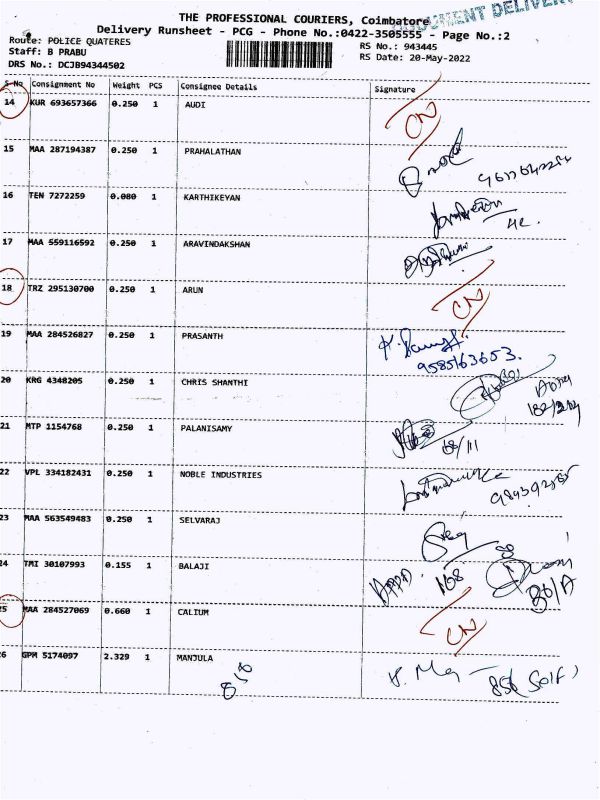 THE PROFESSIONAL COURIERS, Coimbatore
Delivery Runsheet - PCG - Phone No.:0422-3505555 - Page No.:2
Route: POLICE QUATERES
RS No.: 943445
Staff: B PRABU
RS Date: 20-May-2022
DRS No.: DCJB94344502
S No Consignment No Weight PCS Consignee Details Signature
14 KUR 693657366 0.250 1 AUDI CN
15 MAA 287194387 0.250 1 PRAHALATHAN
16 TEN 7272259 0.080 1 KARTHIKEYAN
17 MAA 559116592 0.250 1 ARAVINDAKSHAN
18 TRZ 295130700 0.250 1 ARUN CN
19 MAA 284526827 0.250 1 PRASANTH
9585163653.
20 KRG 4348205 0.250 1 CHRIS SHANTHI
21 MTP 1154768 0.250 1 PALANISAMY
68/11
22 VPL 334182431 0.250 1 NOBLE INDUSTRIES
23 MAA 563549483 0.250 1 SELVARAJ
24 TMI 30107993 0.155 1 BALAJI
168
80/A
25 MAA 284527069 0.660 1 CALIUM CN
26 GPM 5174097 2.329 1 MANJULA
850
856 (Self)